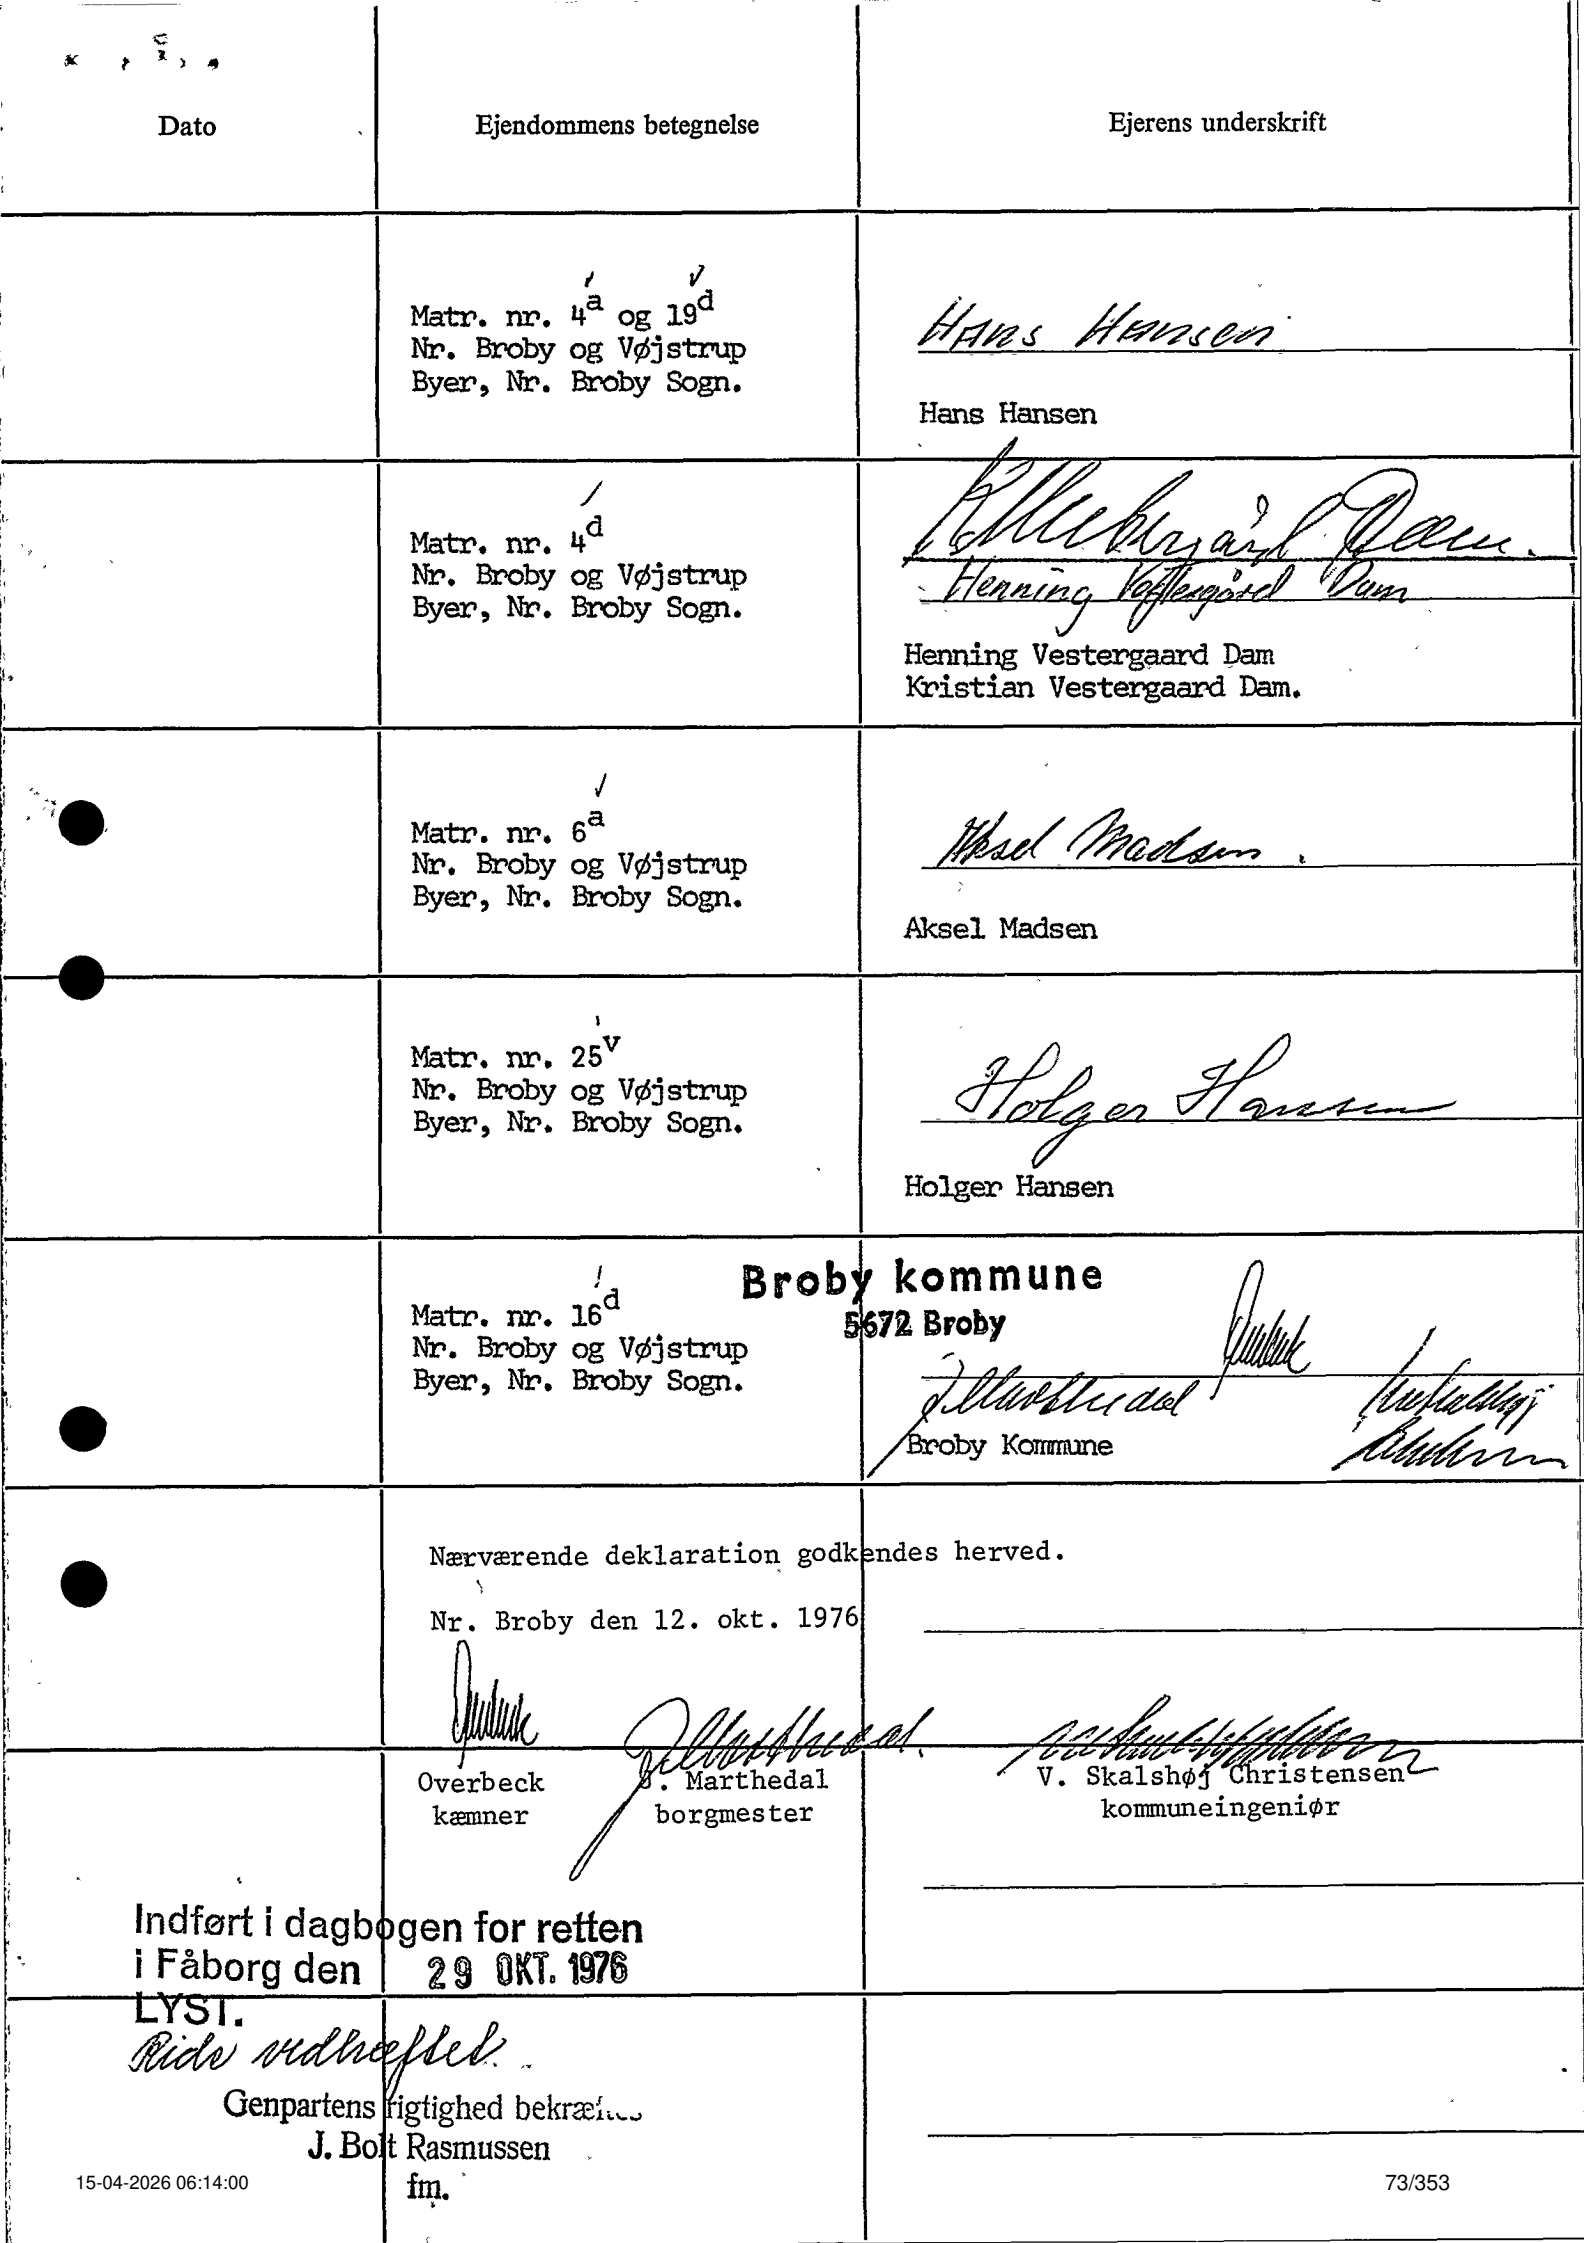 Dato
Ejendommens betegnelse
Ejerens underskrift
Matr. nr. 4a og 19d
Nr. Broby og Vøjstrup
Byer, Nr. Broby Sogn.
Hans Hansen
Hans Hansen
Matr. nr. 4d
Nr. Broby og Vøjstrup
Byer, Nr. Broby Sogn.
K Vestergård Dam.
Henning Vestergård Dam
Henning Vestergaard Dam
Kristian Vestergaard Dam.
Matr. nr. 6a
Nr. Broby og Vøjstrup
Byer, Nr. Broby Sogn.
Aksel Madsen.
Aksel Madsen
Matr. nr. 25v
Nr. Broby og Vøjstrup
Byer, Nr. Broby Sogn.
Holger Hansen
Holger Hansen
Broby kommune
5672 Broby
Matr. nr. 16d
Nr. Broby og Vøjstrup
Byer, Nr. Broby Sogn.
Broby Kommune
Nærværende deklaration godkendes herved.
Nr. Broby den 12. okt. 1976
Overbeck
kæmner
Marthedal
borgmester
V. Skalshøj Christensen
kommuneingeniør
Indført i dagbogen for retten
i Fåborg den 29 OKT. 1976
LYST.
Rids vedhæftet.
Genpartens rigtighed bekræftes
J. Bolt Rasmussen
fm.
15-04-2026 06:14:00
73/353